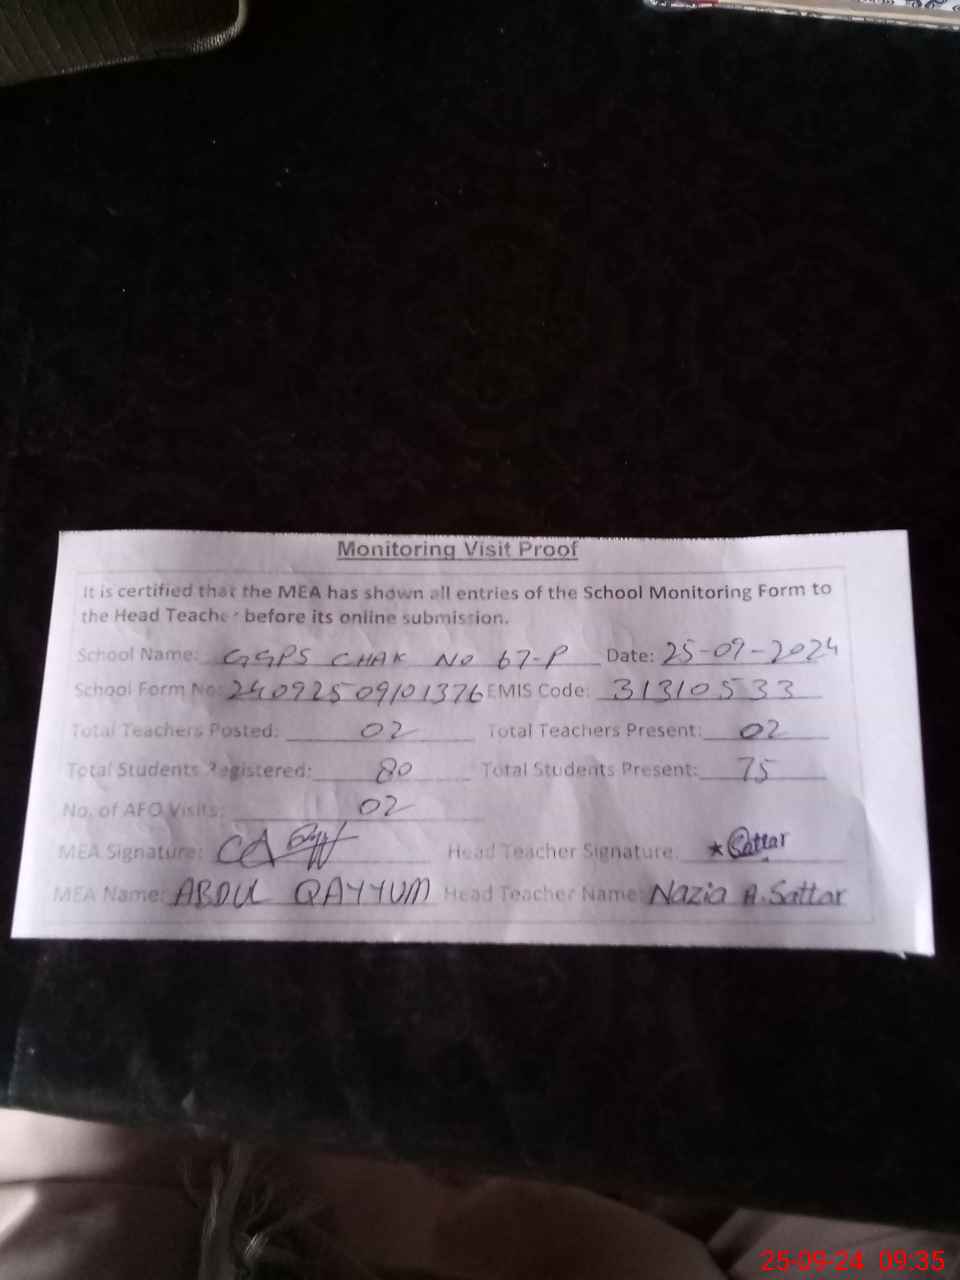 Monitoring Visit Proof
It is certified that the MEA has shown all entries of the School Monitoring Form to
the Head Teacher before its online submission.
School Name: GGPS CHAK NO 67-P Date: 25-09-2024
School Form No: 240925 09101376 EMIS Code: 31310533
Total Teachers Posted: 02 Total Teachers Present: 02
Total Students Registered: 80 Total Students Present: 75
No. of AFO Visits: 02
MEA Signature: Head Teacher Signature: Sattar
MEA Name: ABDUL QAYYUM Head Teacher Name: Nazia A. Sattar
25-09-24 09:35